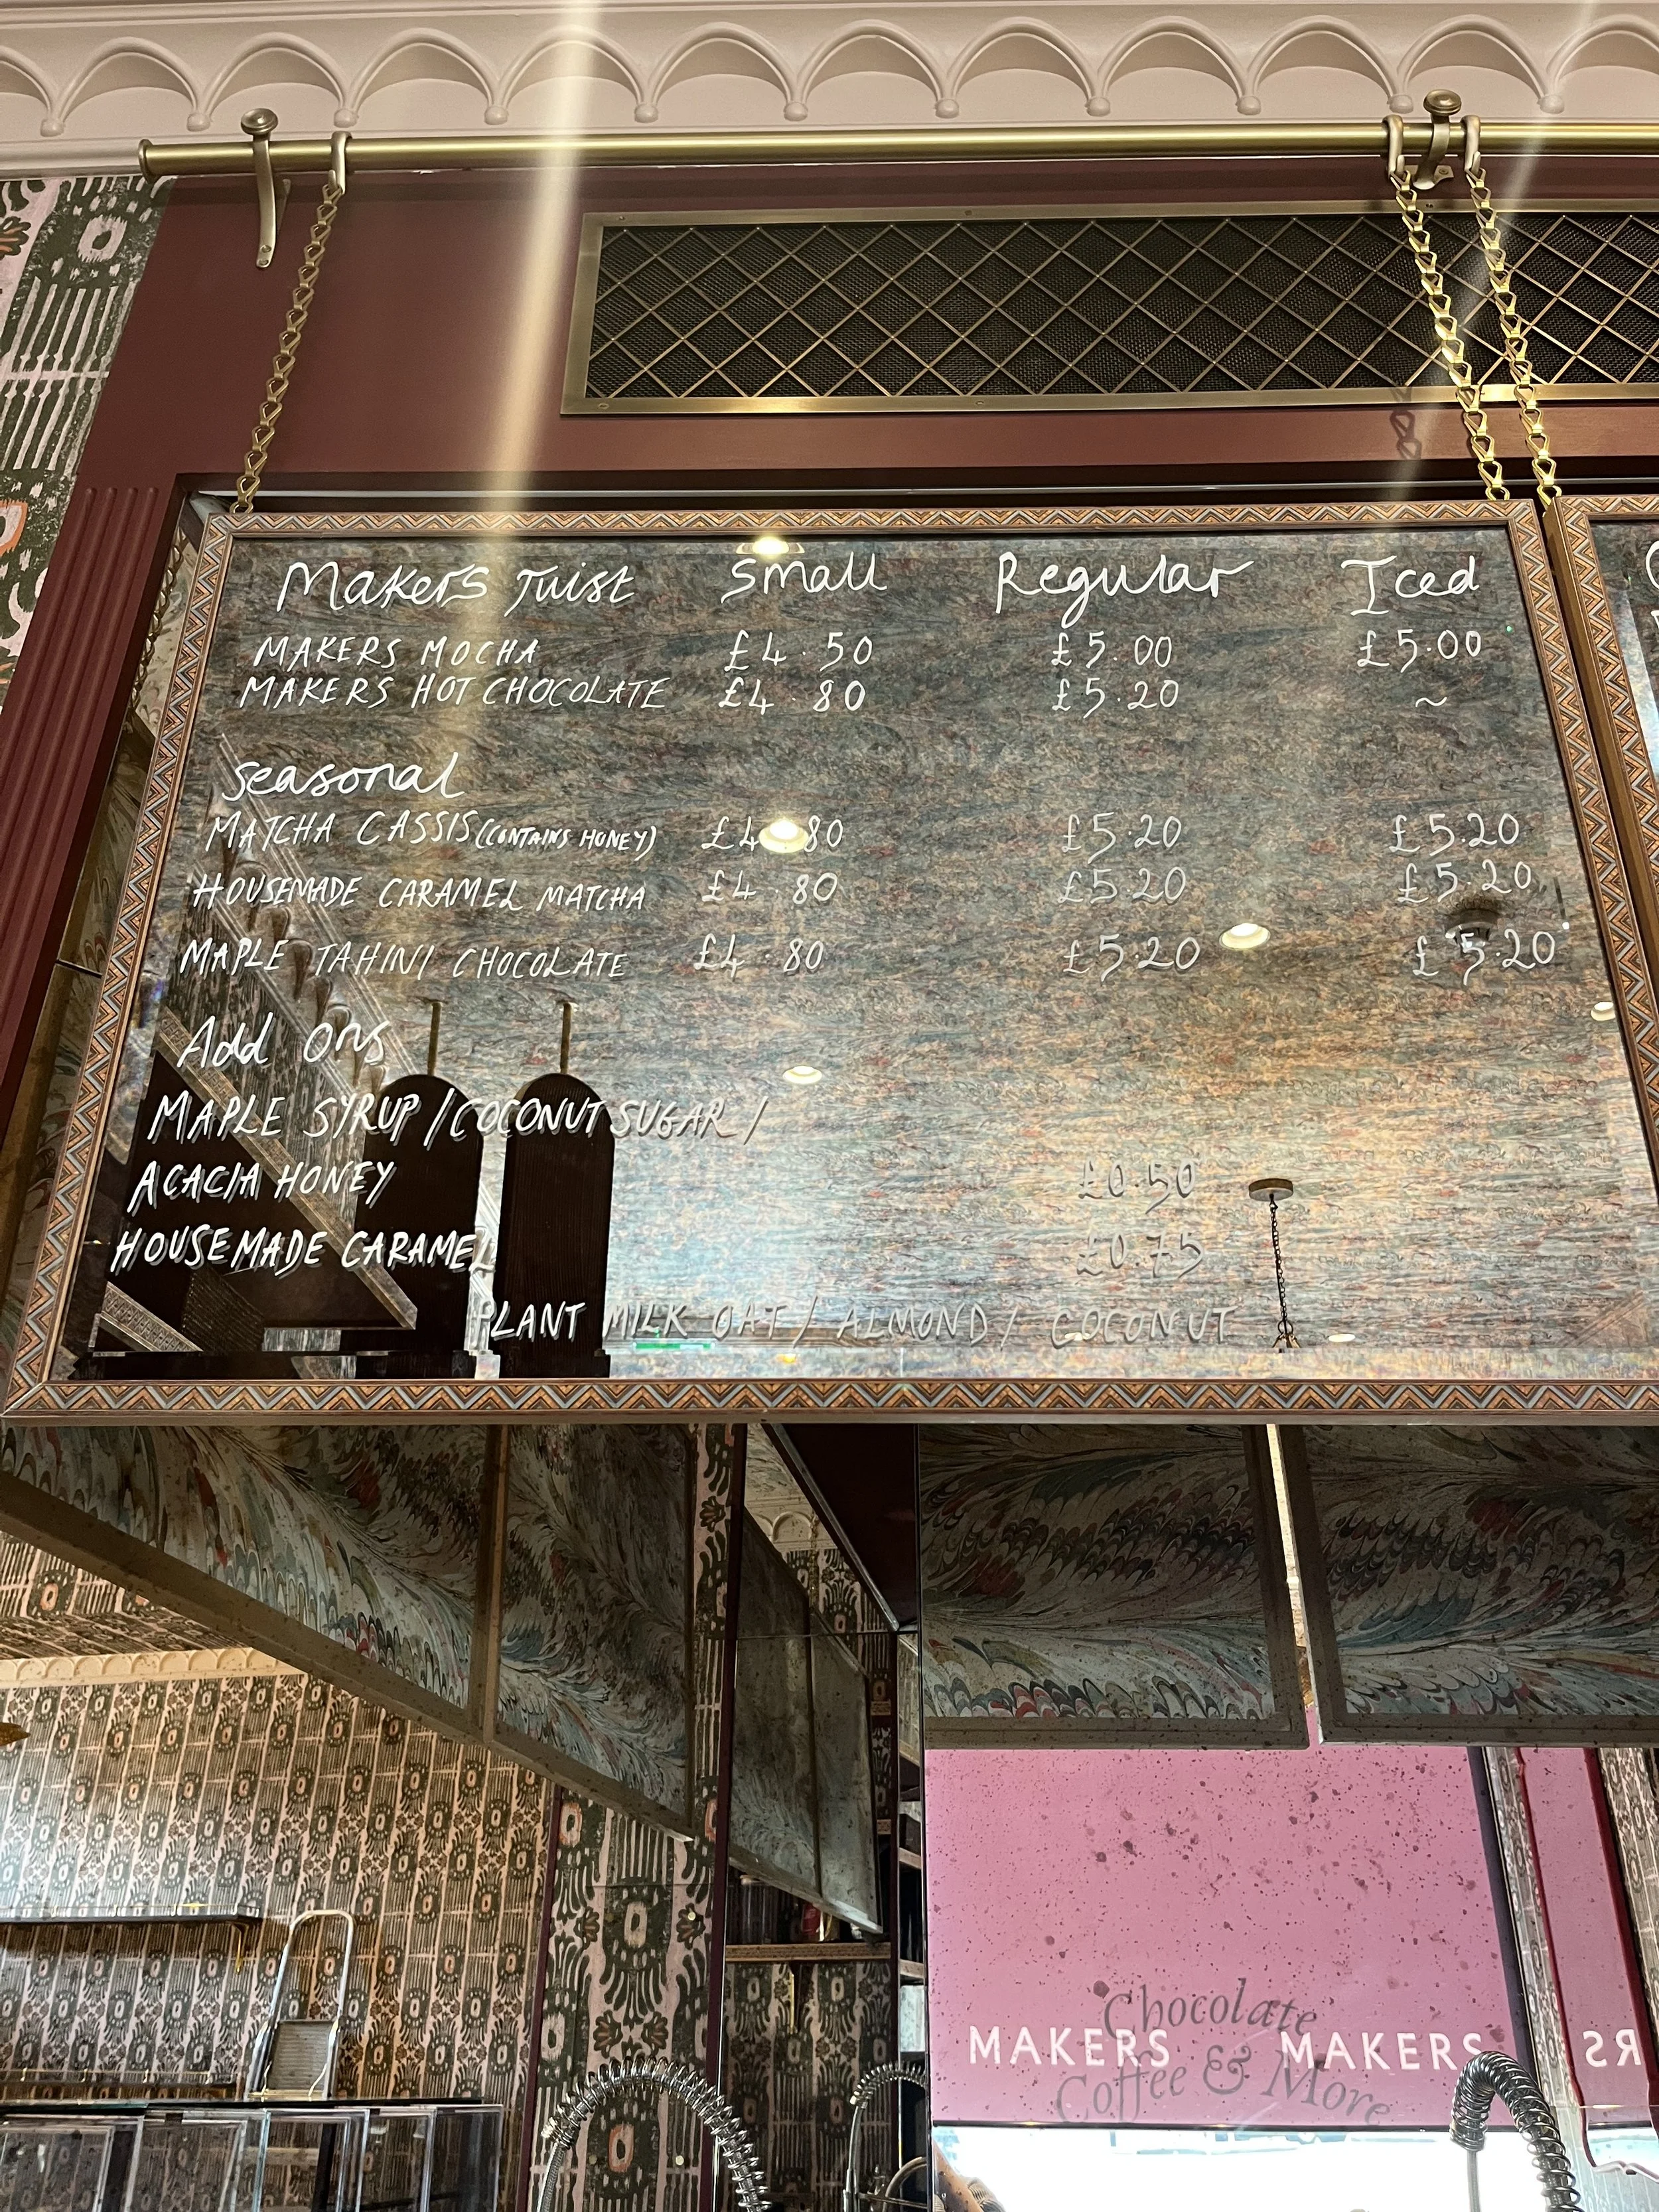 Makers Twist Small Regular Iced
MAKERS MOCHA £4.50 £5.00 £5.00
MAKERS HOT CHOCOLATE £4.80 £5.20 ~
Seasonal
MATCHA CASSIS (CONTAINS HONEY) £4.80 £5.20 £5.20
HOUSEMADE CARAMEL MATCHA £4.80 £5.20 £5.20
MAPLE TAHINI CHOCOLATE £4.80 £5.20 £5.20
Add ons
MAPLE SYRUP / COCONUT SUGAR /
ACACIA HONEY £0.50
HOUSEMADE CARAMEL £0.75
PLANT MILK OAT / ALMOND / COCONUT
Chocolate
MAKERS MAKERS
Coffee & More